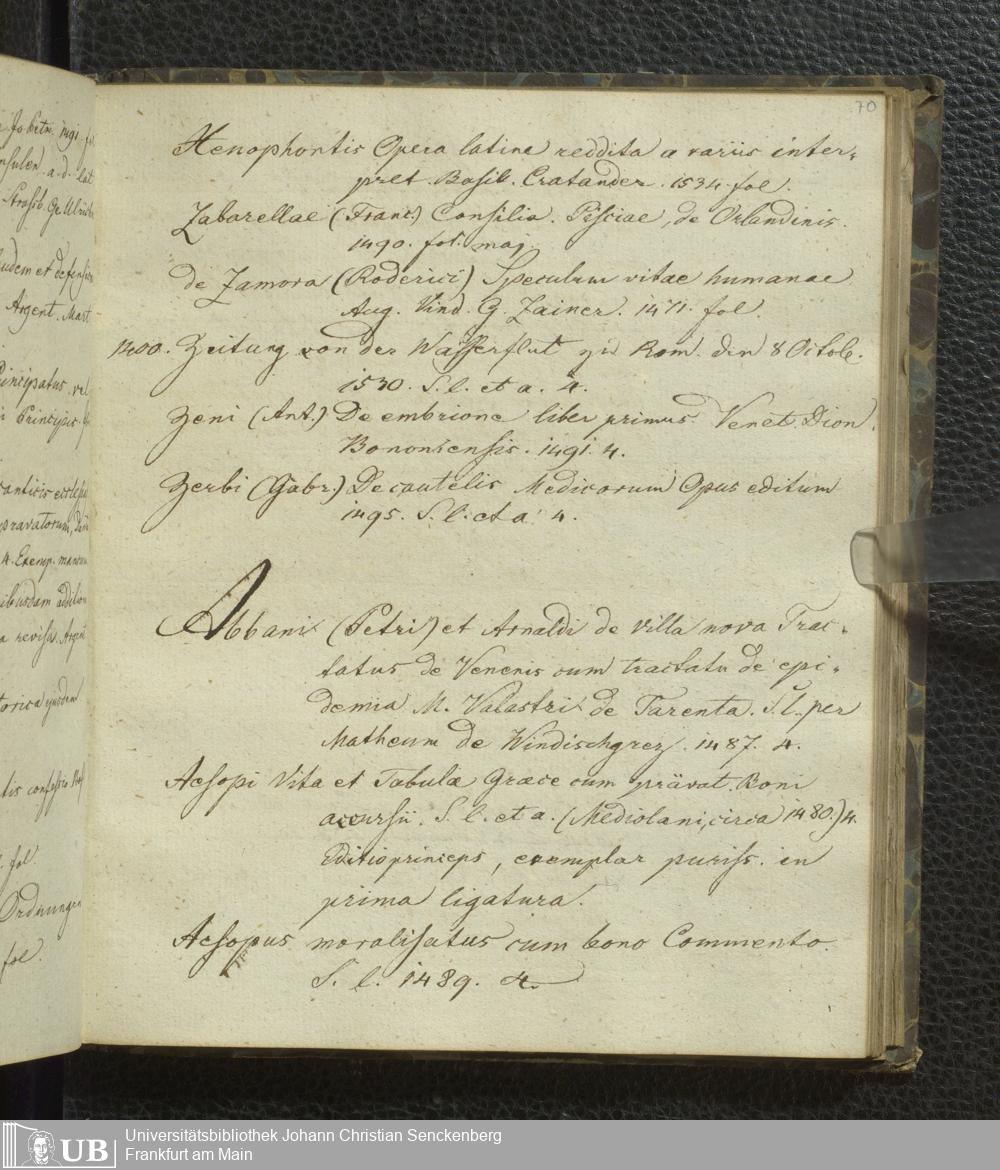 70
Xenophontis Opera latine reddita a variis inter-
pret. Basil. Cratander. 1534. fol.
Zabarellae (Franc.) Consilia. Pisciae, de Orlandinis.
1490. fol. maj.
de Zamora (Roderici) Speculum vitae humanae
Aug. Vind. G. Zainer. 1471. fol.
1400. Zeitung von der Wasserflut zu Rom. den 8 Octob.
1530. S. l. et a. 4.
Zeni (Ant.) De embrione liber primus. Venet. Dion.
Bononiensis. 1491. 4.
Zerbi (Gabr.) De cautelis Medicorum Opus editum
1495. S. l. et a. 4.
Abbani (Petri) et Arnaldi de villa nova Trac-
tatus de Venenis cum tractatu de epi-
demia M. Valastri de Tarenta. S. l. per
Matheum de Windischgrez. 1487. 4.
Aesopi Vita et Fabulæ Græce cum prävat. Boni
accursii. S. l. et a. (Mediolani, circa 1480.) 4.
Editio princeps, exemplar puriss. in
prima ligatura.
Aesopus moralisatus cum bono Commento.
S. l. 1489. 4.
1491
a. d. lat
Strasb.
et defension
Argent. Mart
Principatus vel
Principis
4. Exemp.
revisa. Argent
fol.
Ordnungen
fol.
UB
Universitätsbibliothek Johann Christian Senckenberg
Frankfurt am Main